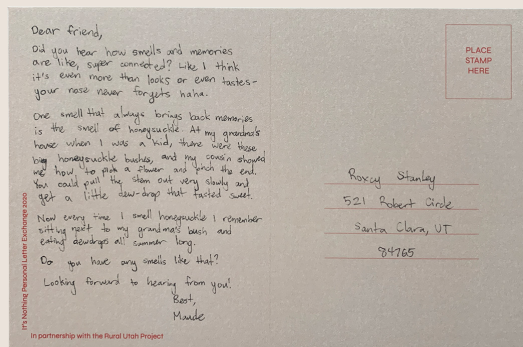 Dear friend,
Did you hear how smells and memories
are like, super connected? Like I think
it's even more than looks or even tastes-
your nose never forgets haha.
One smell that always brings back memories
is the smell of honeysuckle. At my grandma's
house when I was a kid, there were these
big honeysuckle bushes, and my cousin showed
me how to pick a flower and pinch the end.
You could pull the stem out very slowly and
get a little dew-drop that tasted sweet.
Now every time I smell honeysuckle I remember
sitting next to my grandma's bush and
eating dewdrops all summer long.
Do you have any smells like that?
Looking forward to hearing from you!
Best,
Maude
It's Nothing Personal Letter Exchange 2020
In partnership with the Rural Utah Project
PLACE
STAMP
HERE
Roxcy Stanley
521 Robert Circle
Santa Clara, UT
84765